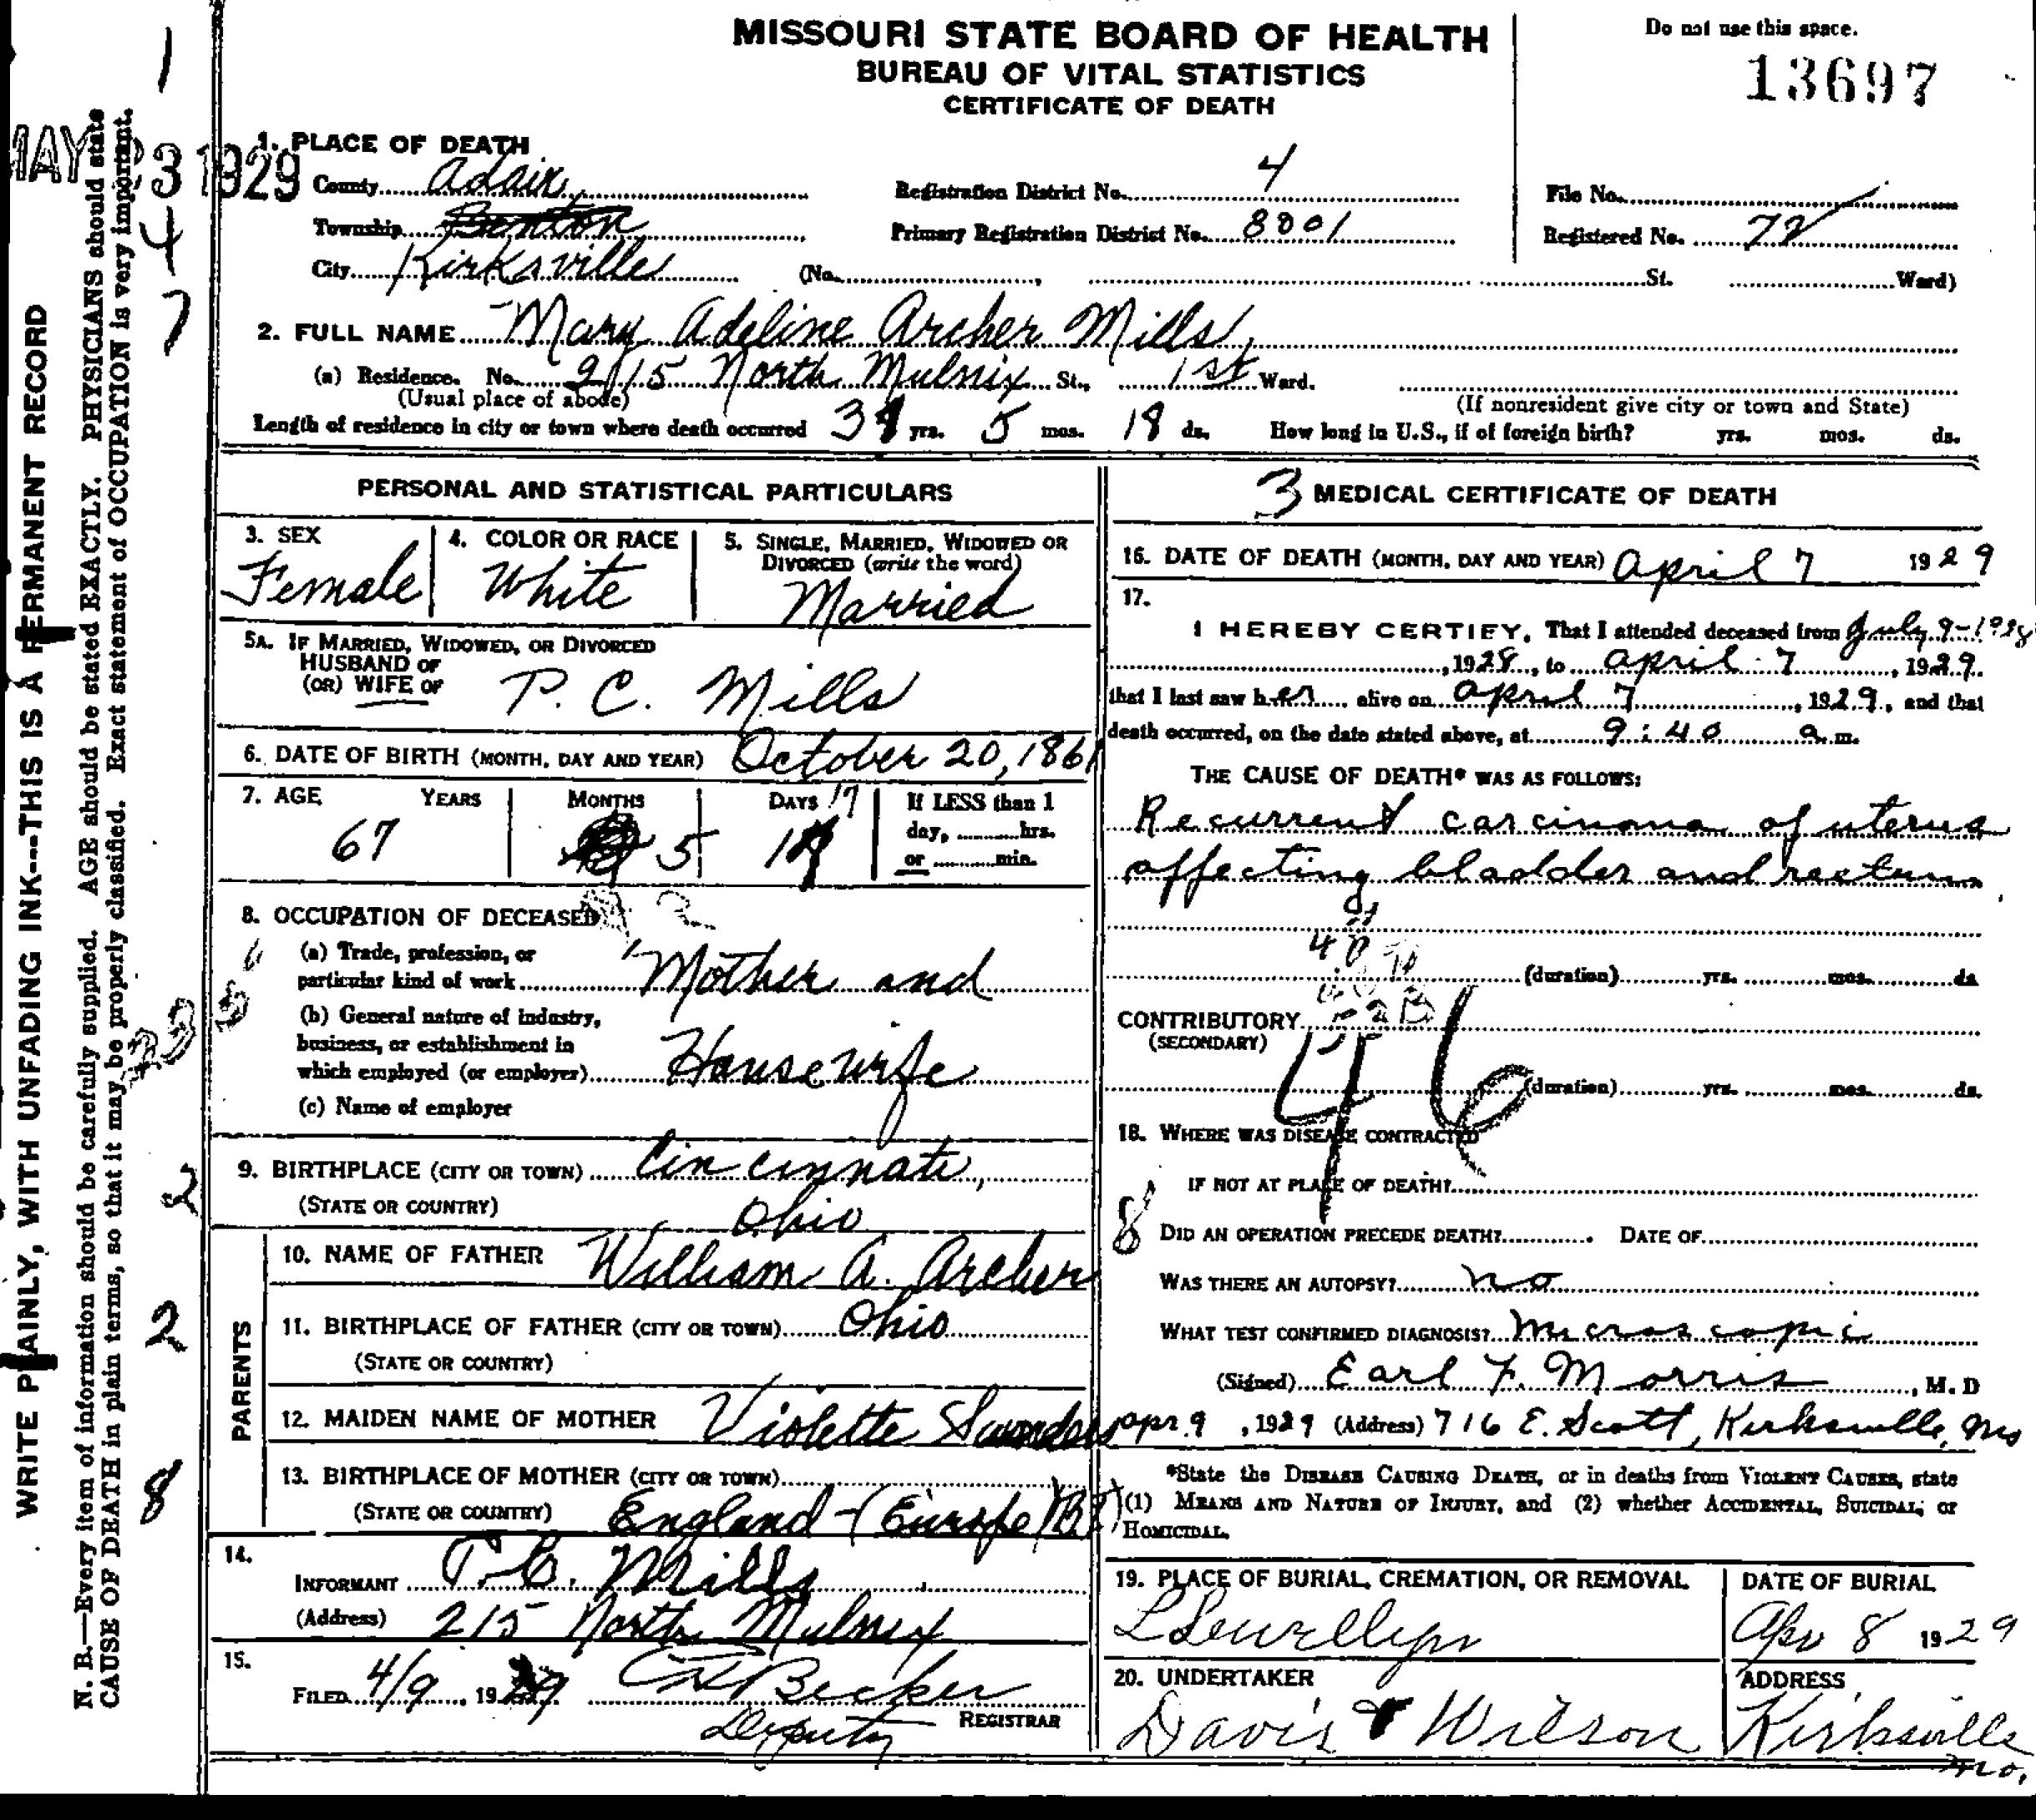 MISSOURI STATE BOARD OF HEALTH
BUREAU OF VITAL STATISTICS
CERTIFICATE OF DEATH
Do not use this space.
13697
MAY 23 1929
1. PLACE OF DEATH
County Adair
Registration District No. 4
File No.
Township Benton
Primary Registration District No. 8001
Registered No. 72
City Kirksville (No. , St. Ward)
2. FULL NAME Mary Adeline Archer Mills
(a) Residence. No. 215 North Mulnix St., 1st Ward.
(Usual place of abode)
(If nonresident give city or town and State)
Length of residence in city or town where death occurred yrs. 5 mos. 18 ds. How long in U.S., if of foreign birth? yrs. mos. ds.
PERSONAL AND STATISTICAL PARTICULARS
3. SEX
Female
4. COLOR OR RACE
White
5. SINGLE, MARRIED, WIDOWED OR
DIVORCED (write the word)
Married
5A. IF MARRIED, WIDOWED, OR DIVORCED
HUSBAND OF
(OR) WIFE OF P. C. Mills
6. DATE OF BIRTH (MONTH, DAY AND YEAR) October 20, 1861
7. AGE YEARS MONTHS DAYS If LESS than 1
day, hrs.
or min.
67 5 17
8. OCCUPATION OF DECEASED
(a) Trade, profession, or
particular kind of work Mother and
(b) General nature of industry,
business, or establishment in
which employed (or employer) Housewife
(c) Name of employer
9. BIRTHPLACE (CITY OR TOWN) Cincinnati,
(STATE OR COUNTRY) Ohio
PARENTS
10. NAME OF FATHER William A. Archer
11. BIRTHPLACE OF FATHER (CITY OR TOWN) Ohio
(STATE OR COUNTRY)
12. MAIDEN NAME OF MOTHER Violette Saunders
13. BIRTHPLACE OF MOTHER (CITY OR TOWN)
(STATE OR COUNTRY) England - (Europe)
14.
INFORMANT P. C. Mills
(Address) 215 North Mulnix
15.
FILED 4/9, 1929 Becker
Deputy REGISTRAR
3 MEDICAL CERTIFICATE OF DEATH
16. DATE OF DEATH (MONTH, DAY AND YEAR) April 7 1929
17.
I HEREBY CERTIFY, That I attended deceased from July 9-1928
, 1928, to April 7, 1929.
that I last saw her alive on April 7, 1929, and that
death occurred, on the date stated above, at 9:40 a.m.
THE CAUSE OF DEATH* WAS AS FOLLOWS:
Recurrent carcinoma of uterus
affecting bladder and rectum.
(duration) yrs. mos. ds.
CONTRIBUTORY
(SECONDARY)
46
(duration) yrs. mos. ds.
18. WHERE WAS DISEASE CONTRACTED
IF NOT AT PLACE OF DEATH?
8
DID AN OPERATION PRECEDE DEATH? DATE OF
WAS THERE AN AUTOPSY? no
WHAT TEST CONFIRMED DIAGNOSIS? Microscopic
(Signed) Earl F. Morris, M. D
Apr. 9, 1929 (Address) 716 E. Scott, Kirksville, Mo
*State the DISEASE CAUSING DEATH, or in deaths from VIOLENT CAUSES, state
(1) MEANS AND NATURE OF INJURY, and (2) whether ACCIDENTAL, SUICIDAL, or
HOMICIDAL.
19. PLACE OF BURIAL, CREMATION, OR REMOVAL
Llewellyn
DATE OF BURIAL
Apr 8 1929
20. UNDERTAKER
Davis & Wilson
ADDRESS
Kirksville
Mo.
WRITE PLAINLY, WITH UNFADING INK---THIS IS A PERMANENT RECORD
N. B.—Every item of information should be carefully supplied. AGE should be stated EXACTLY. PHYSICIANS should state
CAUSE OF DEATH in plain terms, so that it may be properly classified. Exact statement of OCCUPATION is very important.
1
4
7
2
2
8